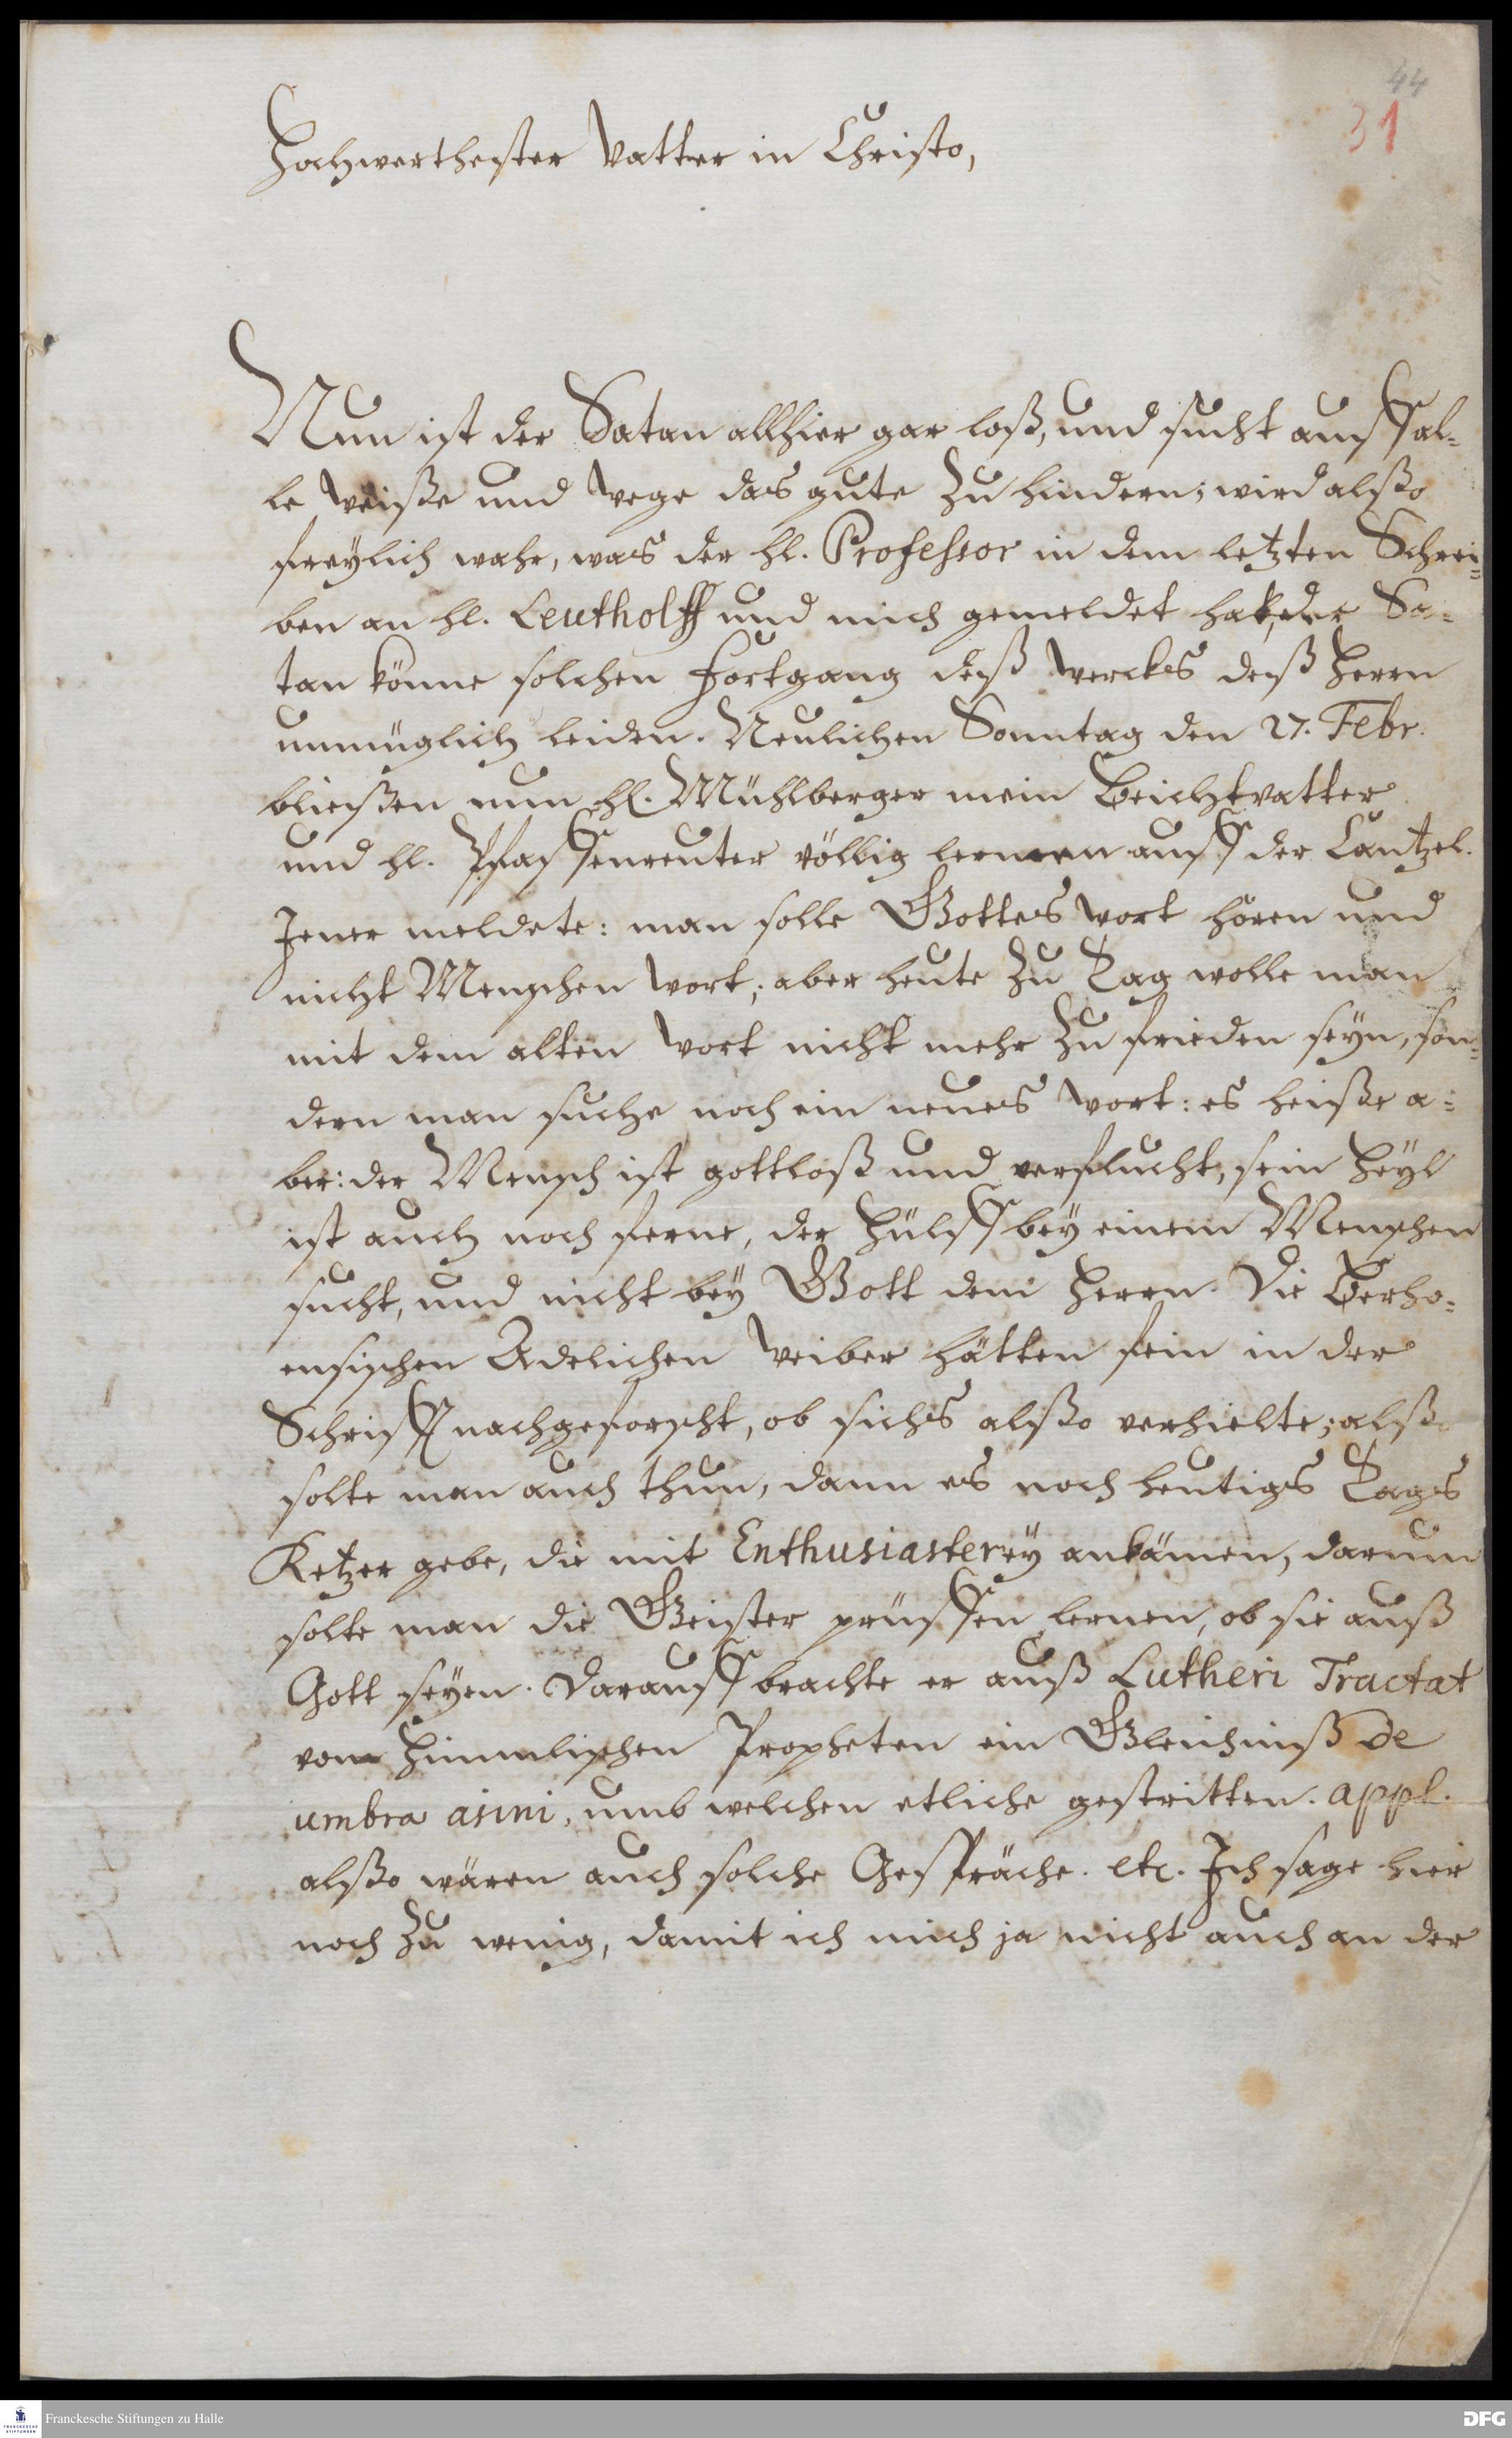 44
31
Hochwerthester Vatter in Christo,
Nun ist der Satan allhier gar loß, und sucht auff al-
le weiße und wege das gute zu hindern; wird alßo
freylich wahr, was der hl. Professor in dem letzten Schrei-
ben an hl. Leutholff und mich gemeldet hat, der Sa-
tan könne solchen fortgang deß wercks deß Herrn
unmüglich leiden. Neulichen Sonntag den 27. Febr.
bließen nun hl. Mühlberger mein Beichtvatter
und hl. Pfaffenreuter völlig lermen auff der Cantzel.
Jener meldete: man solle Gottes wort hören und
nicht Menschen wort; aber heute zu Tag wolle man
mit dem alten wort nicht mehr zu frieden seyn, son-
dern man suche noch ein neues wort: es heiße a-
ber: der Mensch ist gottloß und verflucht, sein Heyl
ist auch noch ferne, der Hülff bey einem Menschen
sucht, und nicht bey Gott dem Herrn. Die Berho-
ensischen Adelichen Weiber hätten fein in der
Schrifft nachgeforscht, ob sichs alßo verhielte; alßo
solte man auch thun, dann es noch heutigs Tags
Ketzer gebe, die mit Enthusiasterey ankämen, darum
solte man die Geister prüffen lernen, ob sie auß
Gott seyen. Darauff brachte er auß Lutheri Tractat
vom himmlischen Propheten ein Gleichniß de
umbra asini, umb welchen etliche gestritten. appl.
alßo wären auch solche Gespräche. etc. Ich sage hier
noch zu wenig, damit ich mich ja nicht auch an der
FRANCKESCHE STIFTUNGEN
Franckesche Stiftungen zu Halle
DFG